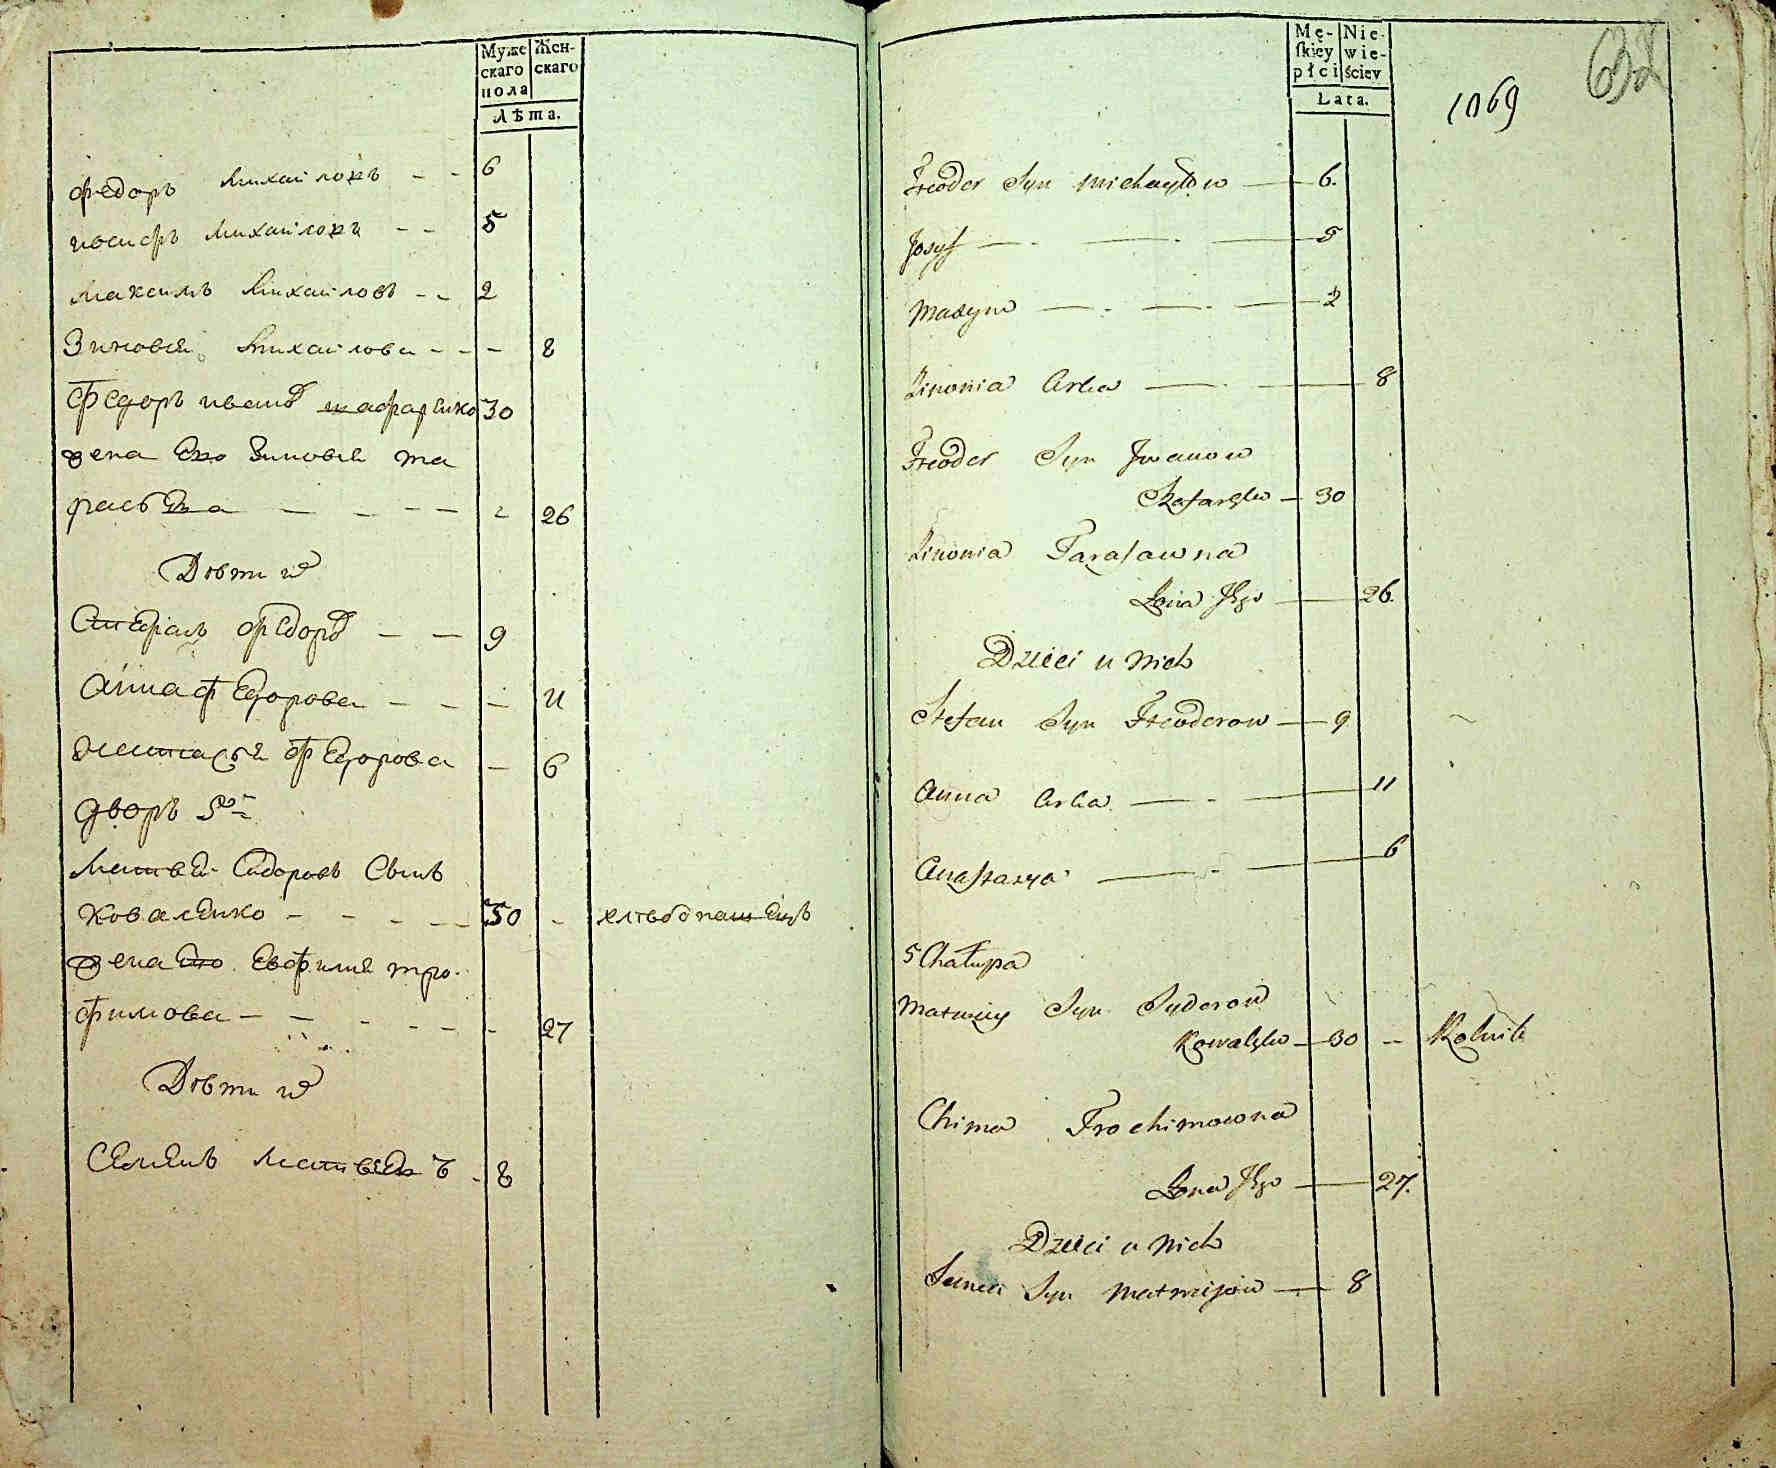 Муже
скаго
пола
Жен-
скаго
Лѣта.
федоръ Михаиловъ - - 6
иосифъ Михаиловъ - - 5
Максимъ Михаиловъ - - 2
Зиновея Михаилова - - - 8
Федоръ ивановъ шафаренко 30
жена Его Зиновея та
расовна - - - - - - 26
Дѣти их
Стефанъ федоровъ - - 9
Анна федорова - - - 11
Анастасея федорова - 6
дворъ 5й
Матвей Сидоровъ Сынъ
Коваленко - - - - - 30 - хлѣбопашецъ
жена Его Евфимия тро-
фимова - - - - - - - 27
Дѣти их
Семенъ Матвеевъ - 8
Mę-
skiey
płci
Nie-
wie-
ściey
Lata.
1069
632
Fteodor Syn Michayłow — 6.
Josyf — - — - — 5
Maxym — - — - — 2
Zinowia Crka — - — 8
Fteodor Syn Jwanow
Szafaręko — 30
Zinowia Tarasowna
Zona Jego — 26.
Dzieci u Nich
Stefan Syn Fteodorow — 9
Anna Crka — - — 11
Anastazya — - — 6
5 Chałupa
Matwiey Syn Sydorow
Kowalęko — 30 -- Rolnik
Chima Trochimowna
Zona Jego — 27.
Dzieci u Nich
Semen Syn Matwijow — 8